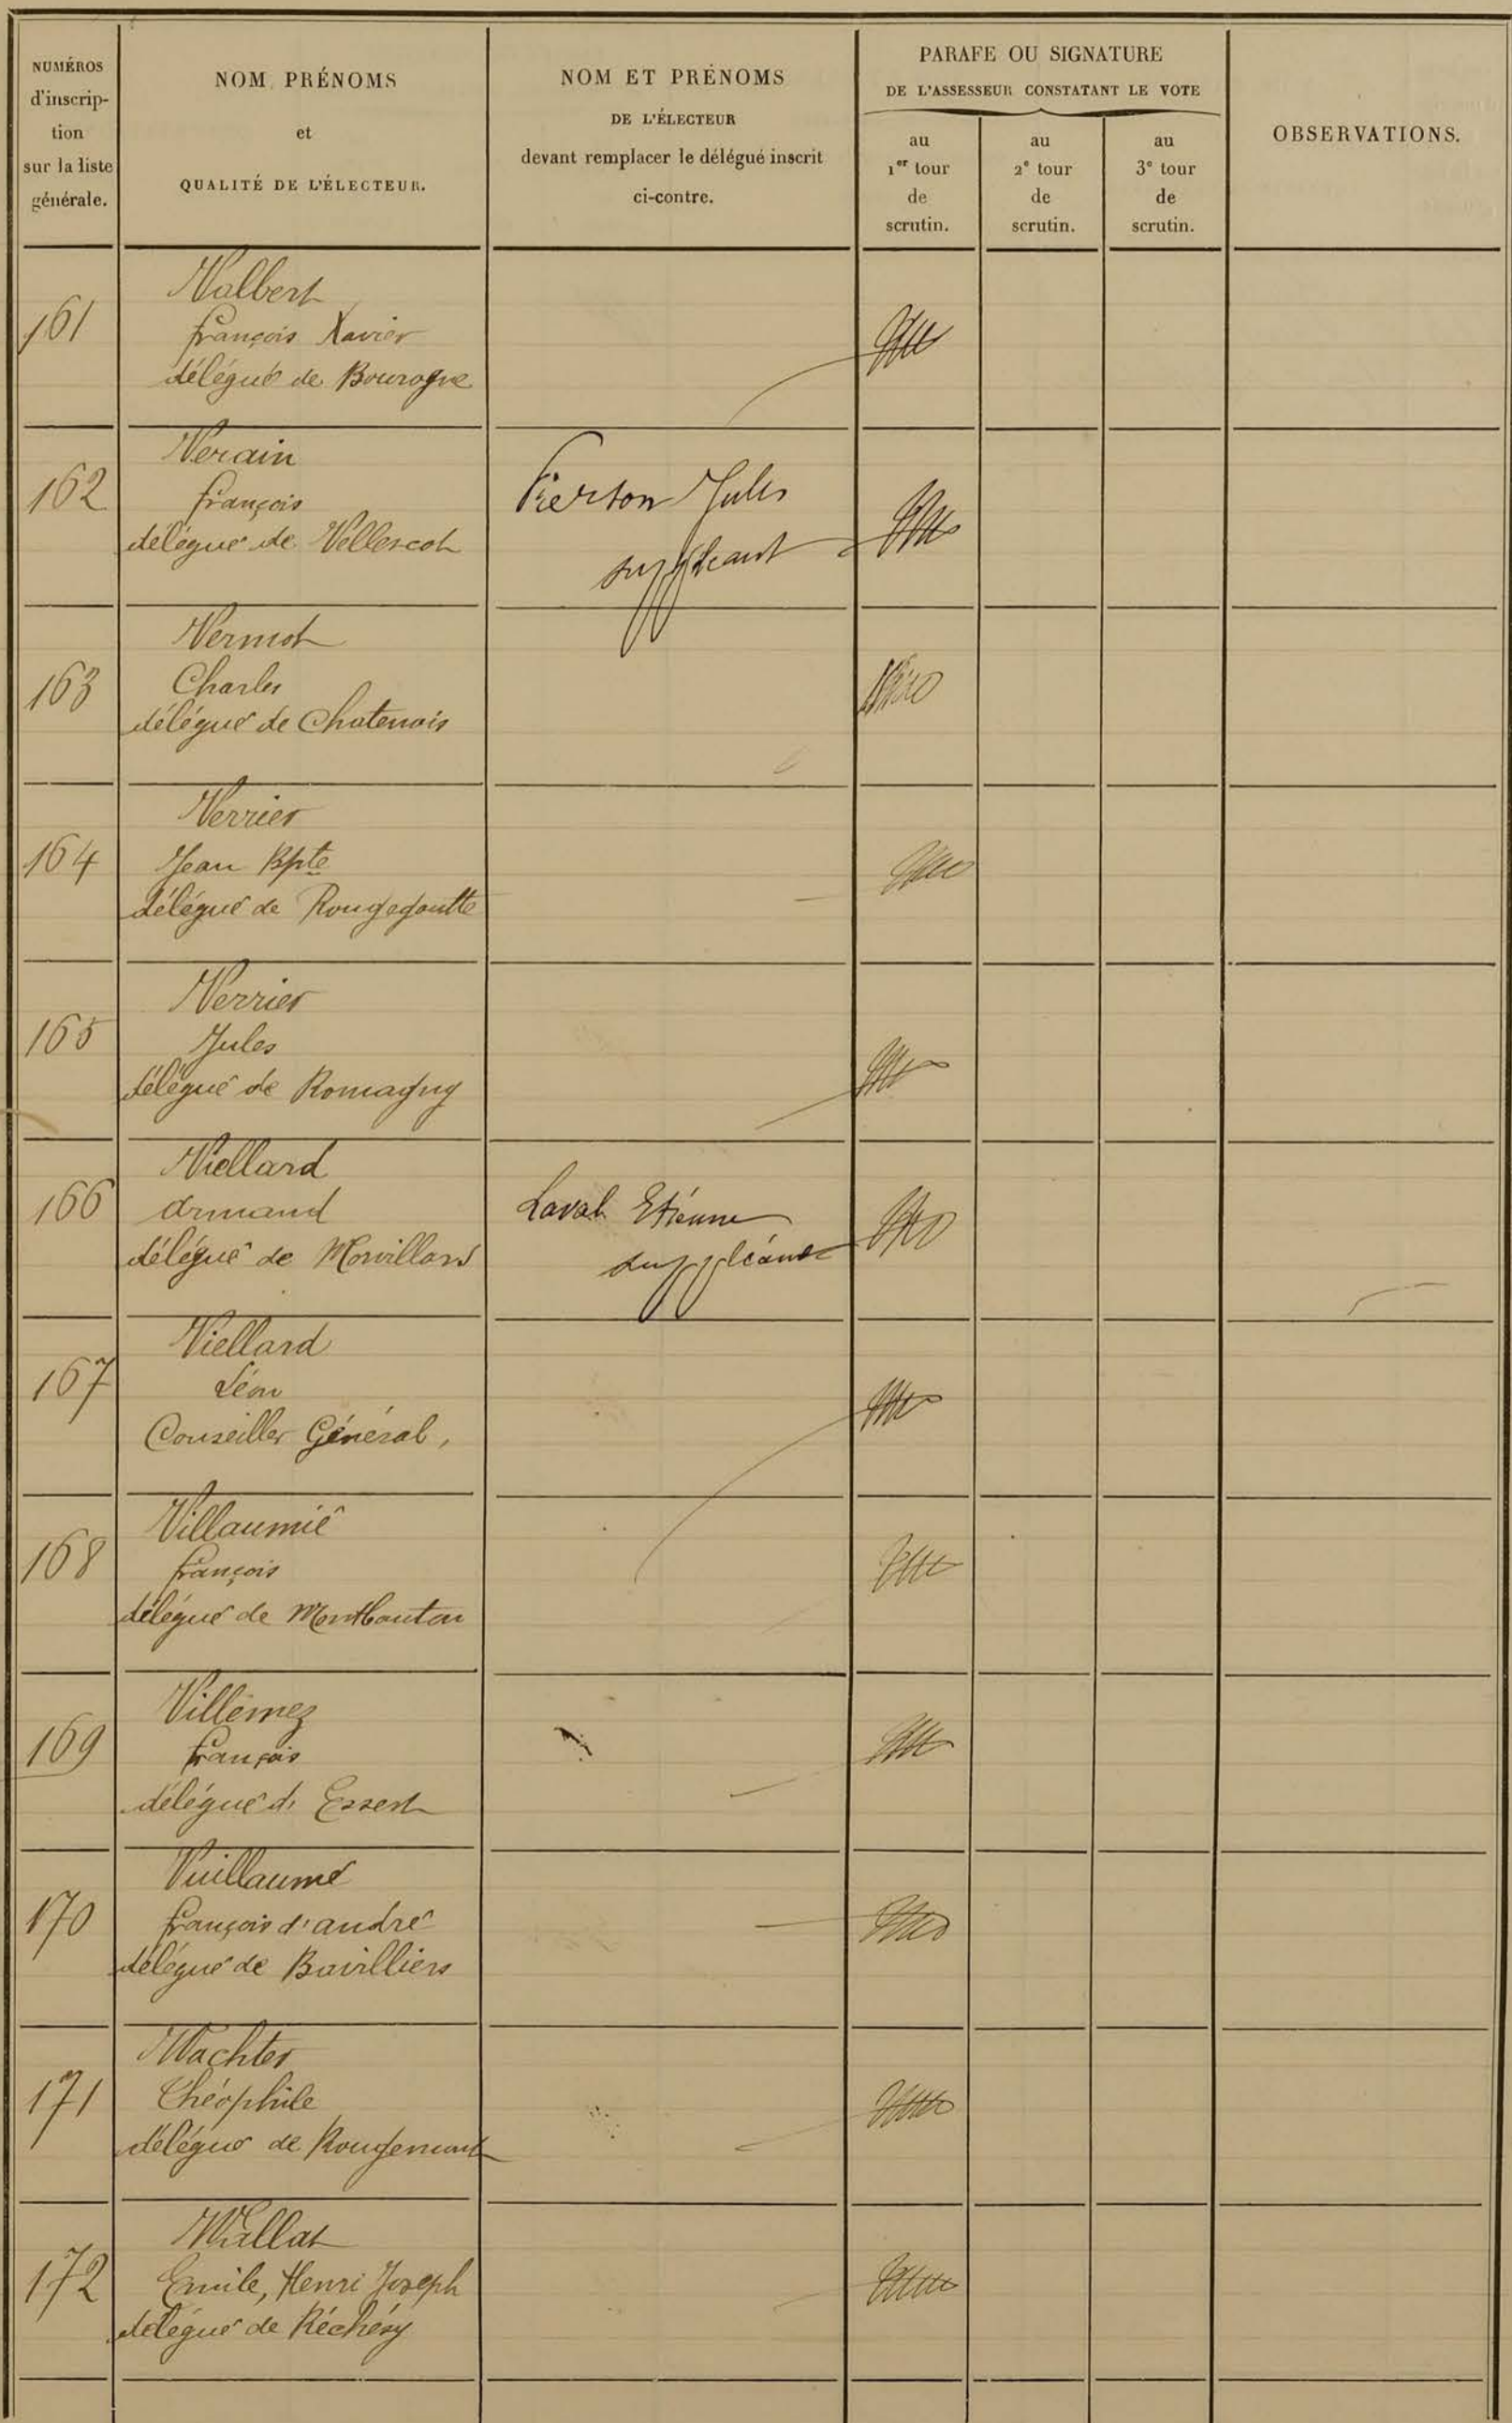 NUMÉROS
d'inscrip-
tion
sur la liste
générale.
NOM, PRÉNOMS
et
QUALITÉ DE L'ÉLECTEUR.
NOM ET PRÉNOMS
DE L'ÉLECTEUR
devant remplacer le délégué inscrit
ci-contre.
PARAFE OU SIGNATURE
DE L'ASSESSEUR CONSTATANT LE VOTE
au
1er tour
de
scrutin.
au
2e tour
de
scrutin.
au
3e tour
de
scrutin.
OBSERVATIONS.
161
Valbert
françois Xavier
délégué de Bourogne
162
Verain
françois
délégué de Vellescot
Pierson Jules
suppléant
163
Vermot
Charles
délégué de Chatenois
164
Verrier
Jean Bpte
délégué de Rougegoutte
165
Verrier
Jules
délégué de Romagny
166
Viellard
Armand
délégué de Morvillars
Laval Etienne
suppléant
167
Viellard
Léon
Conseiller Général,
168
Villaumié
françois
délégué de Montbouton
169
Villemez
françois
délégué d' Essert
170
Vuillaume
françois d'andré
délégué de Bavilliers
171
Wachter
Théophile
délégué de Rougemont
172
Wallat
Emile, Henri Joseph
délégué de Réchésy